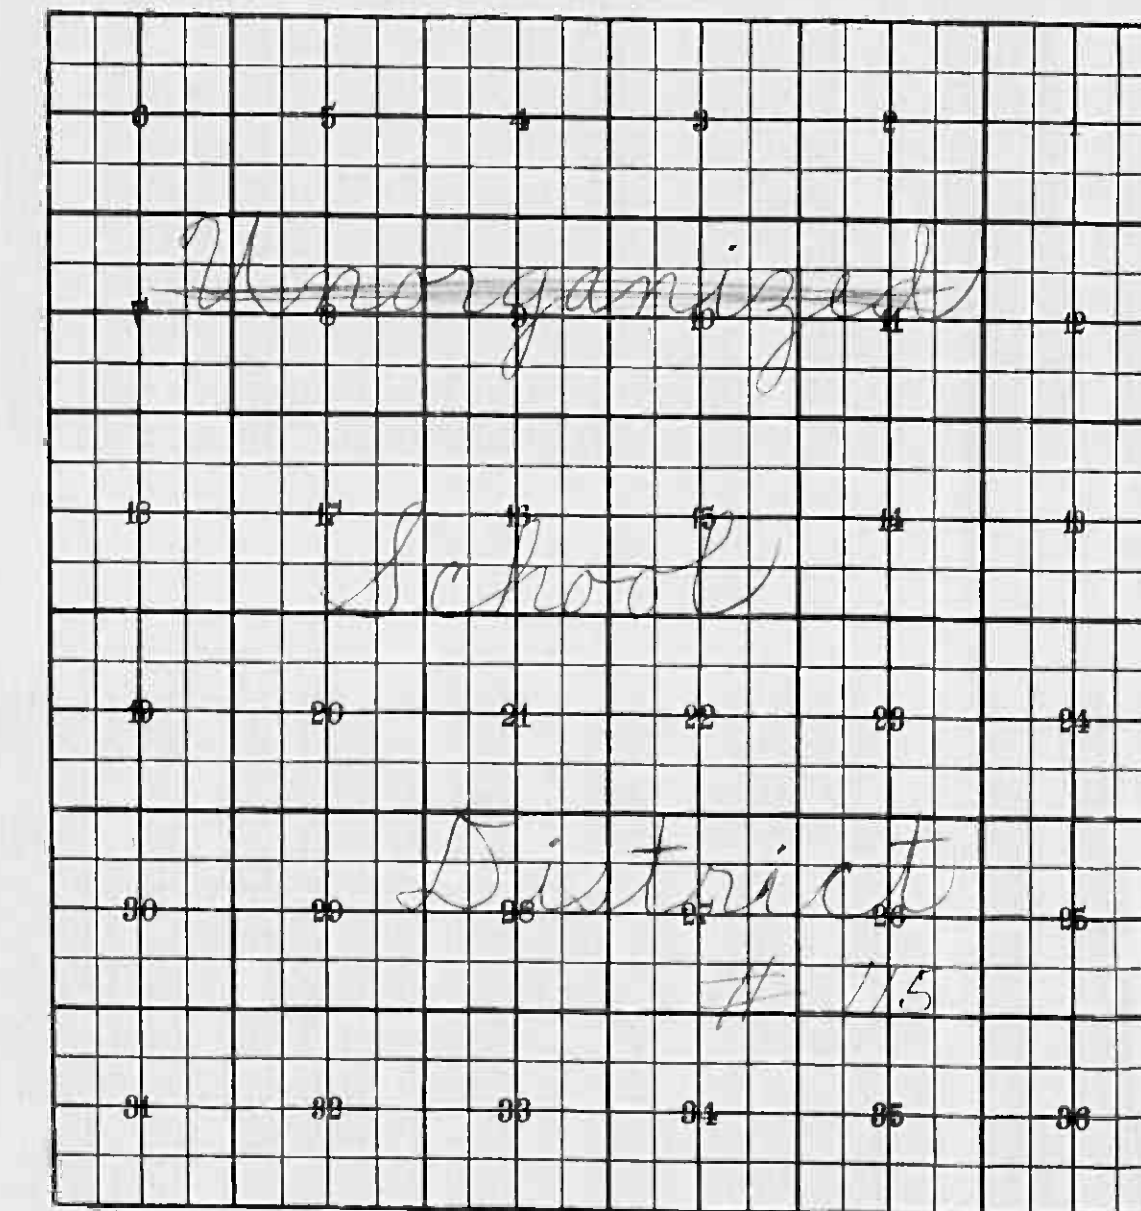 6 5 4 3 2 1
Unorganized
7 8 9 10 11 12
18 17 16 15 14 13
School
19 20 21 22 23 24
District
30 29 28 27 26 25
# 115
31 32 33 34 35 36